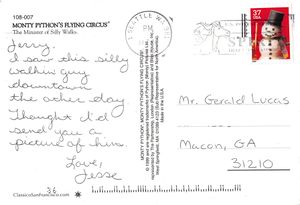 108-007
MONTY PYTHON'S FLYING CIRCUS
"The Minister of Silly Walks"
Jerry,
I saw this silly
walkin guy
downtown
the other day
Thought I'd
send you a
picture of him.
Love,
Jesse
ClassicoSanFrancisco.com
36
SEATTLE
PM
37
USA
Mr. Gerald Lucas
Macon, GA
31210